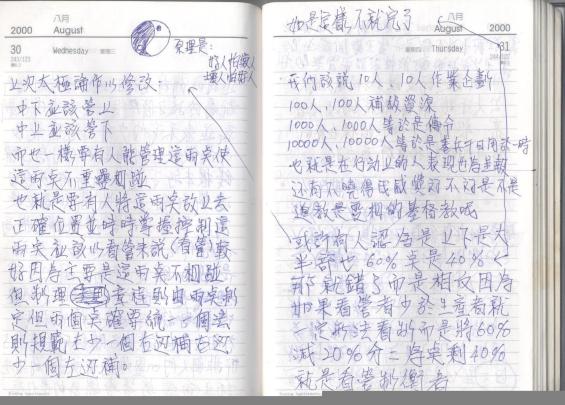 八月
2000 August
30 Wednesday 星期三
243/123
原理是：
好人怕壞人
壞人怕好人
上次太極論作以修改：
中下應該管上
中上應該管下
而也一樣要有人能管理這兩桌使
這兩桌不重疊相碰
也就是要有人將這兩桌放上去
正確位置並時時掌握控制這
兩桌應該以看管來說(看管)較
好因為主要是這兩桌不相碰
但制理 章程則由兩桌制
定但兩個桌確要統一個法
則規範左少一個右邊補右邊
少一個左邊補。
如是這樣不就完了
八月
August 2000
Thursday 31
我們該說10人、10人作業企劃
100人、100人補發資源
1000人、1000人等於是傳令
10000人、10000人等於是養兵千日用於一時
也就是在行動上的人表現也為主報
還有不曉得我感覺的不的是不是
道教是要相的基督教嗎
或許有人認為是上下是大
半部也60%來是40%
那就錯了而是相反因為
如果看管者少於生產者就
一定形法看制而是將60%
減20%分二將來剩40%
就是看管制衡者